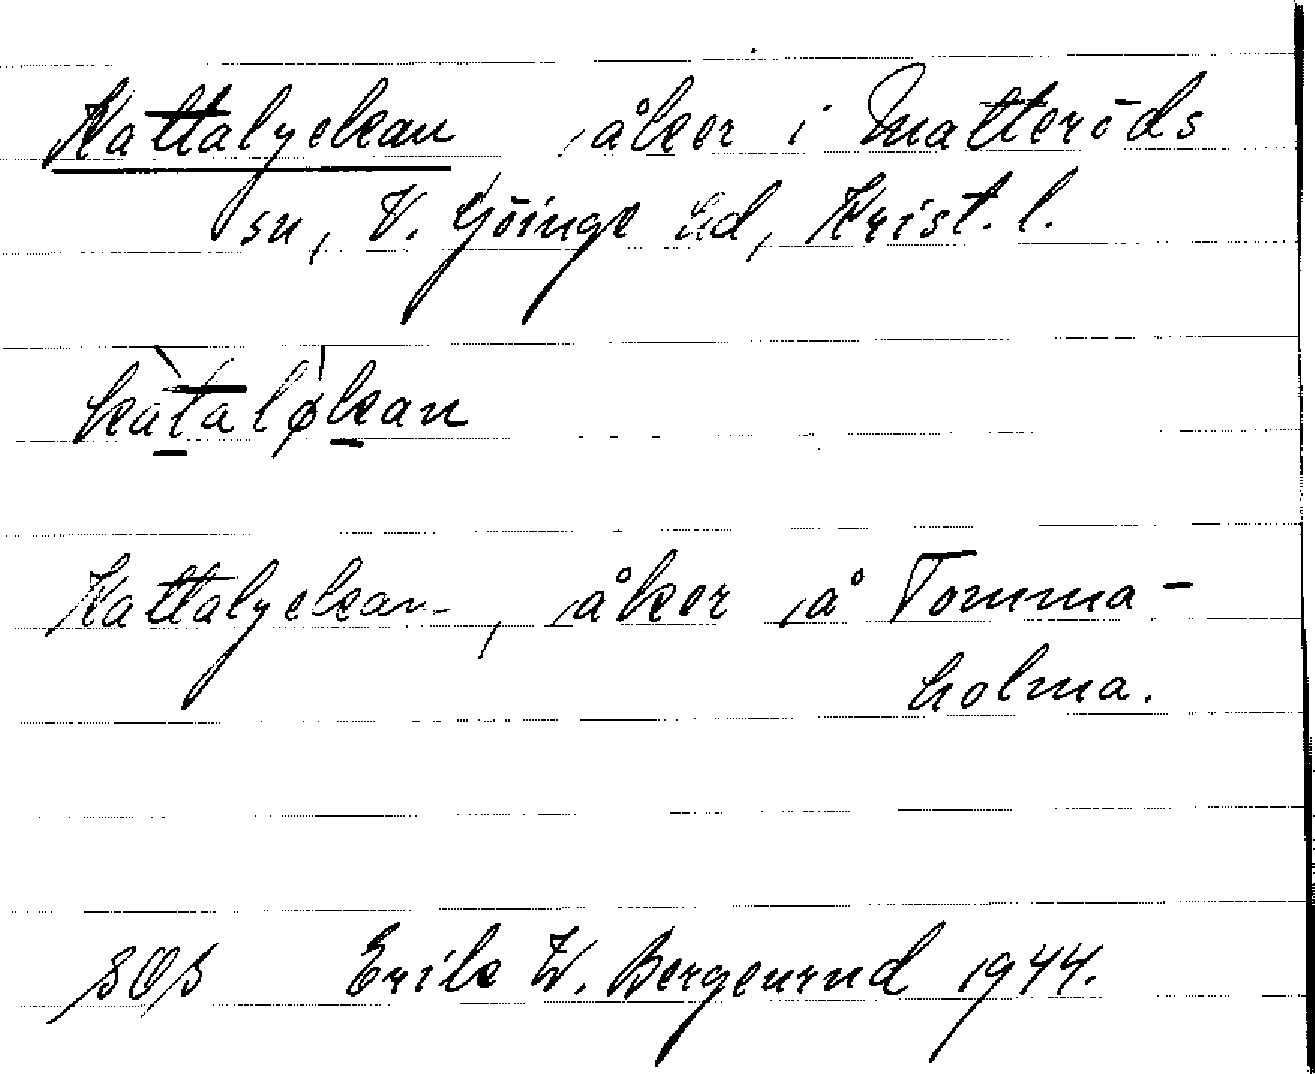 Kattalyckan, åker i Matteröds
sn, V. Göinge hd, Krist. l.
kàtalø̍kan
Kattalyckan, åker å Tomma-
holma.
SOS Erik W. Bergenrud 1944.